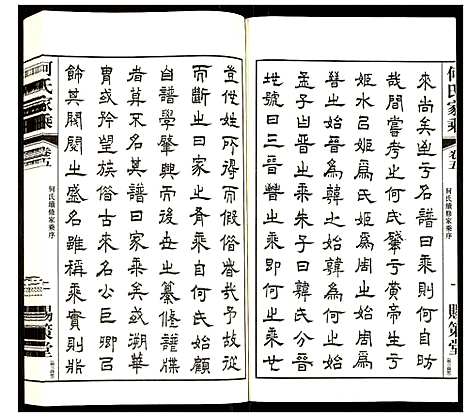 何氏家乘
卷五
何氏續修家乘序
一
賜策堂
來尚矣迨于名譜曰乘則何自昉
哉間嘗考之何氏肇于黃帝生于
姬水以姬爲氏姬爲周之始周爲
晉之始晉爲韓之始韓爲何之始
孟子曰晉之乘朱子曰韓氏分晉
地號曰三晉晉之乘即何之乘也
豈他姓所得而假借者哉我故從
而斷之曰家之肴乘自何氏始顧
自譜學肇興而後世之纂修譜牒
者莫不其譜曰家乘矣或溯華
胄或矜望族俗求合于公巨卿已
飾其閥閱之盛名雖乘實則非
何氏家乘
卷五
何氏續修家乘序
二
賜策堂